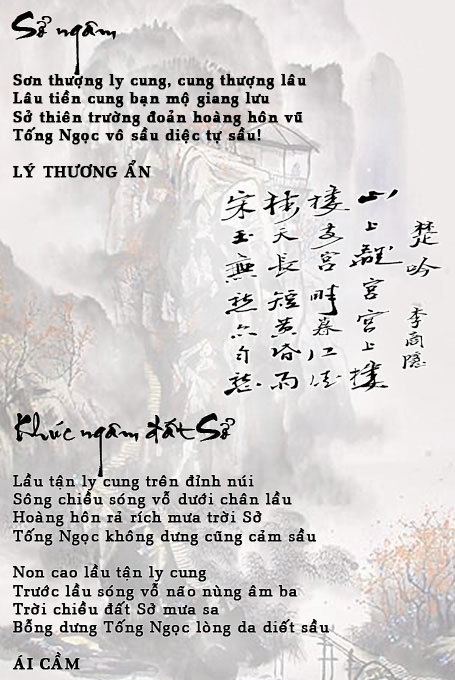 Sở ngâm
Sơn thượng ly cung, cung thượng lâu
Lâu tiền cung bạn mộ giang lưu
Sở thiên trường đoản hoàng hôn vũ
Tống Ngọc vô sầu diệc tự sầu!
LÝ THƯƠNG ẨN
楚吟
李商隱
山上離宮宮上樓
樓前宮畔暮江流
楚天長短黃昏雨
宋玉無愁亦自愁
Khúc ngâm đất Sở
Lầu tận ly cung trên đỉnh núi
Sông chiều sóng vỗ dưới chân lầu
Hoàng hôn rả rích mưa trời Sở
Tống Ngọc không dưng cũng cảm sầu
Non cao lầu tận ly cung
Trước lầu sóng vỗ não nùng âm ba
Trời chiều đất Sở mưa sa
Bỗng dưng Tống Ngọc lòng da diết sầu
ÁI CẦM